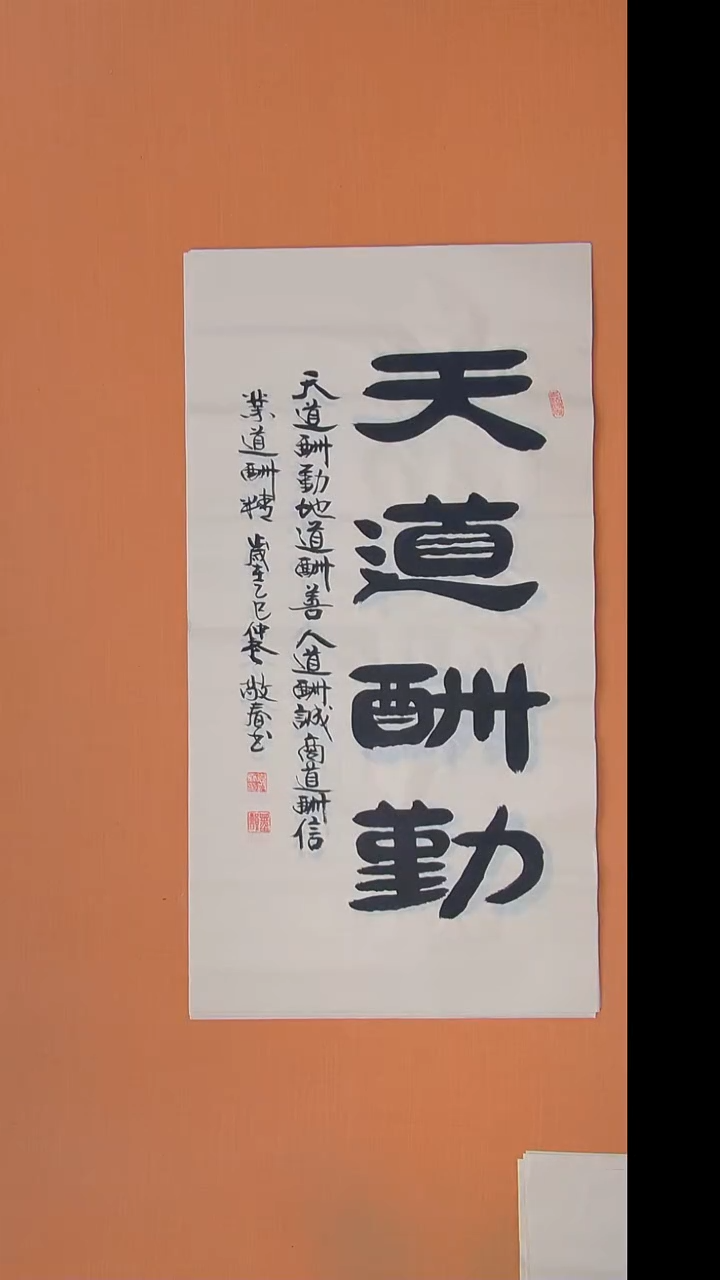 天道酬勤
天道酬勤地道酬善人道酬誠商道酬信
業道酬精歲在乙巳仲春敬春书